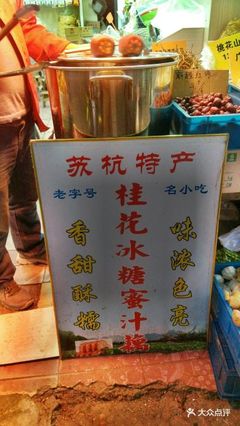 苏杭特产
老字号
名小吃
桂花冰糖蜜汁藕
香甜酥糯
味浓色亮
大众点评